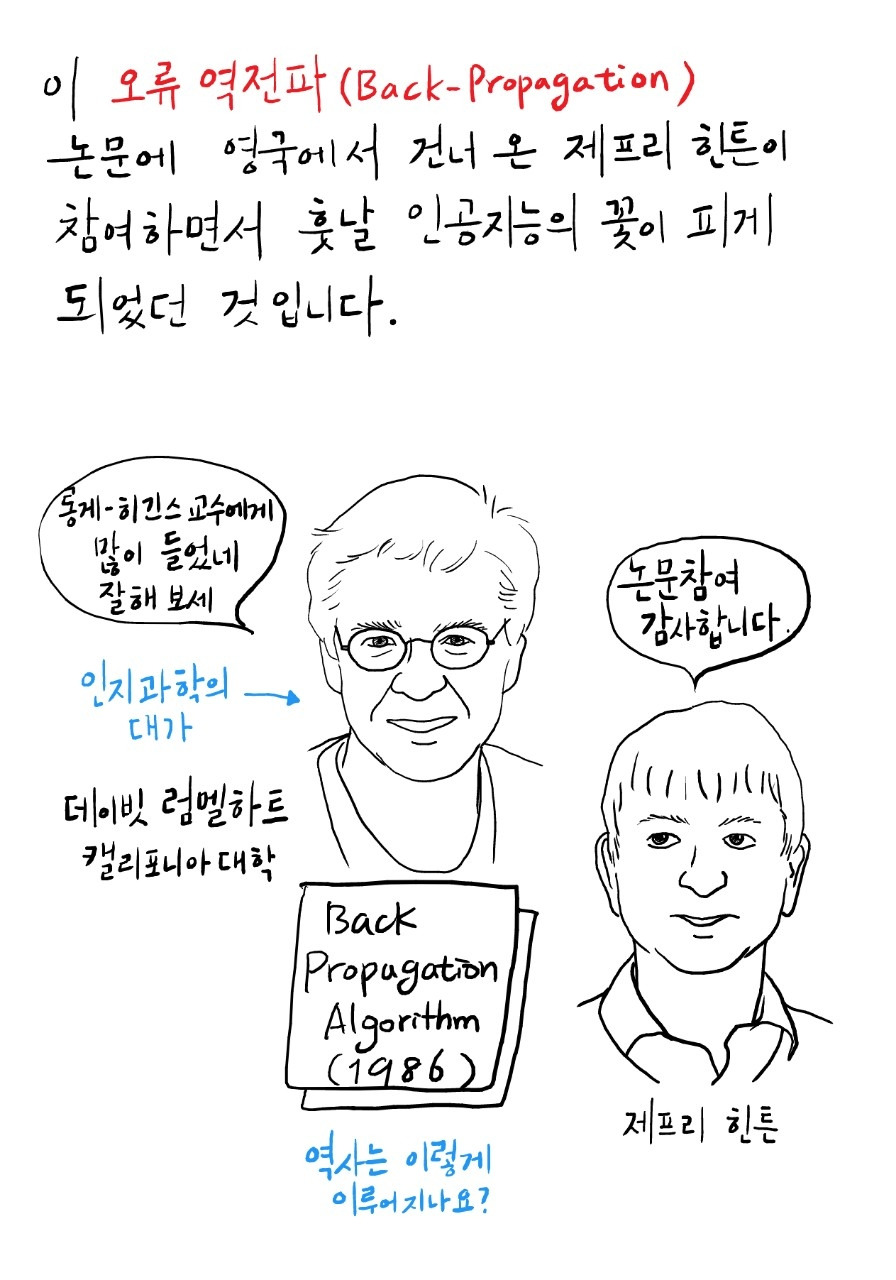 이 오류 역전파 (Back-Propagation)
논문에 영국에서 건너 온 제프리 힌튼이
참여하면서 훗날 인공지능의 꽃이 피게
되었던 것입니다.
롱게-히긴스 교수에게
많이 들었네
잘해 보세
논문참여
감사합니다.
인지과학의
대가
데이빗 럼멜하트
캘리포니아 대학
Back
Propagation
Algorithm
(1986)
제프리 힌튼
역사는 이렇게
이루어지나요?